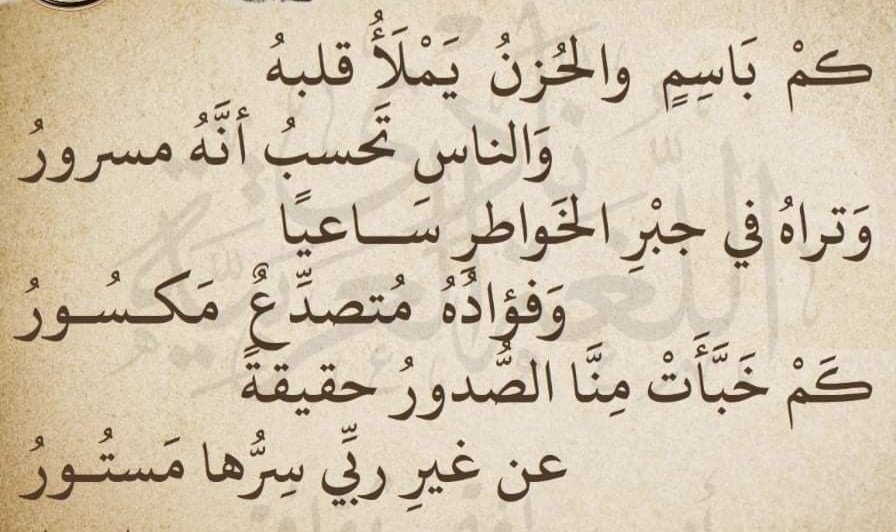 كمْ بَاسِمٍ والحُزنُ يَمْلَأُ قلبهُ
وَالناس تَحسبُ أنَّهُ مسرورُ
وَتراهُ في جبْرِ الخَواطرِ سَـــاعيًا
وَفؤادُهُ مُتصدِّعٌ مَكـسُـورُ
كَمْ خَبَّأَتْ مِنَّا الصُّدورُ حقيقةً
عن غيرِ ربِّي سِرُّها مَستُـورُ